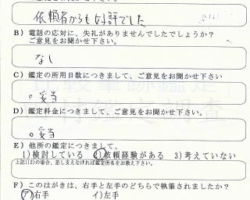 依頼者からも好評でした
B) 電話の応対に、失礼がありませんでしたでしょうか?
ご意見をお聞かせ下さい。
なし
C) 鑑定の所用日数につきまして、ご意見をお聞かせ下さい
。妥当
D) 鑑定料金につきまして、ご意見をお聞かせ下さい。
。妥当
E) 他所の鑑定につきまして、
1)検討している 2)依頼経験がある 3)考えていない
F) このはがきは、右手と左手のどちらで執筆されましたか?
ア)右手 イ)左手